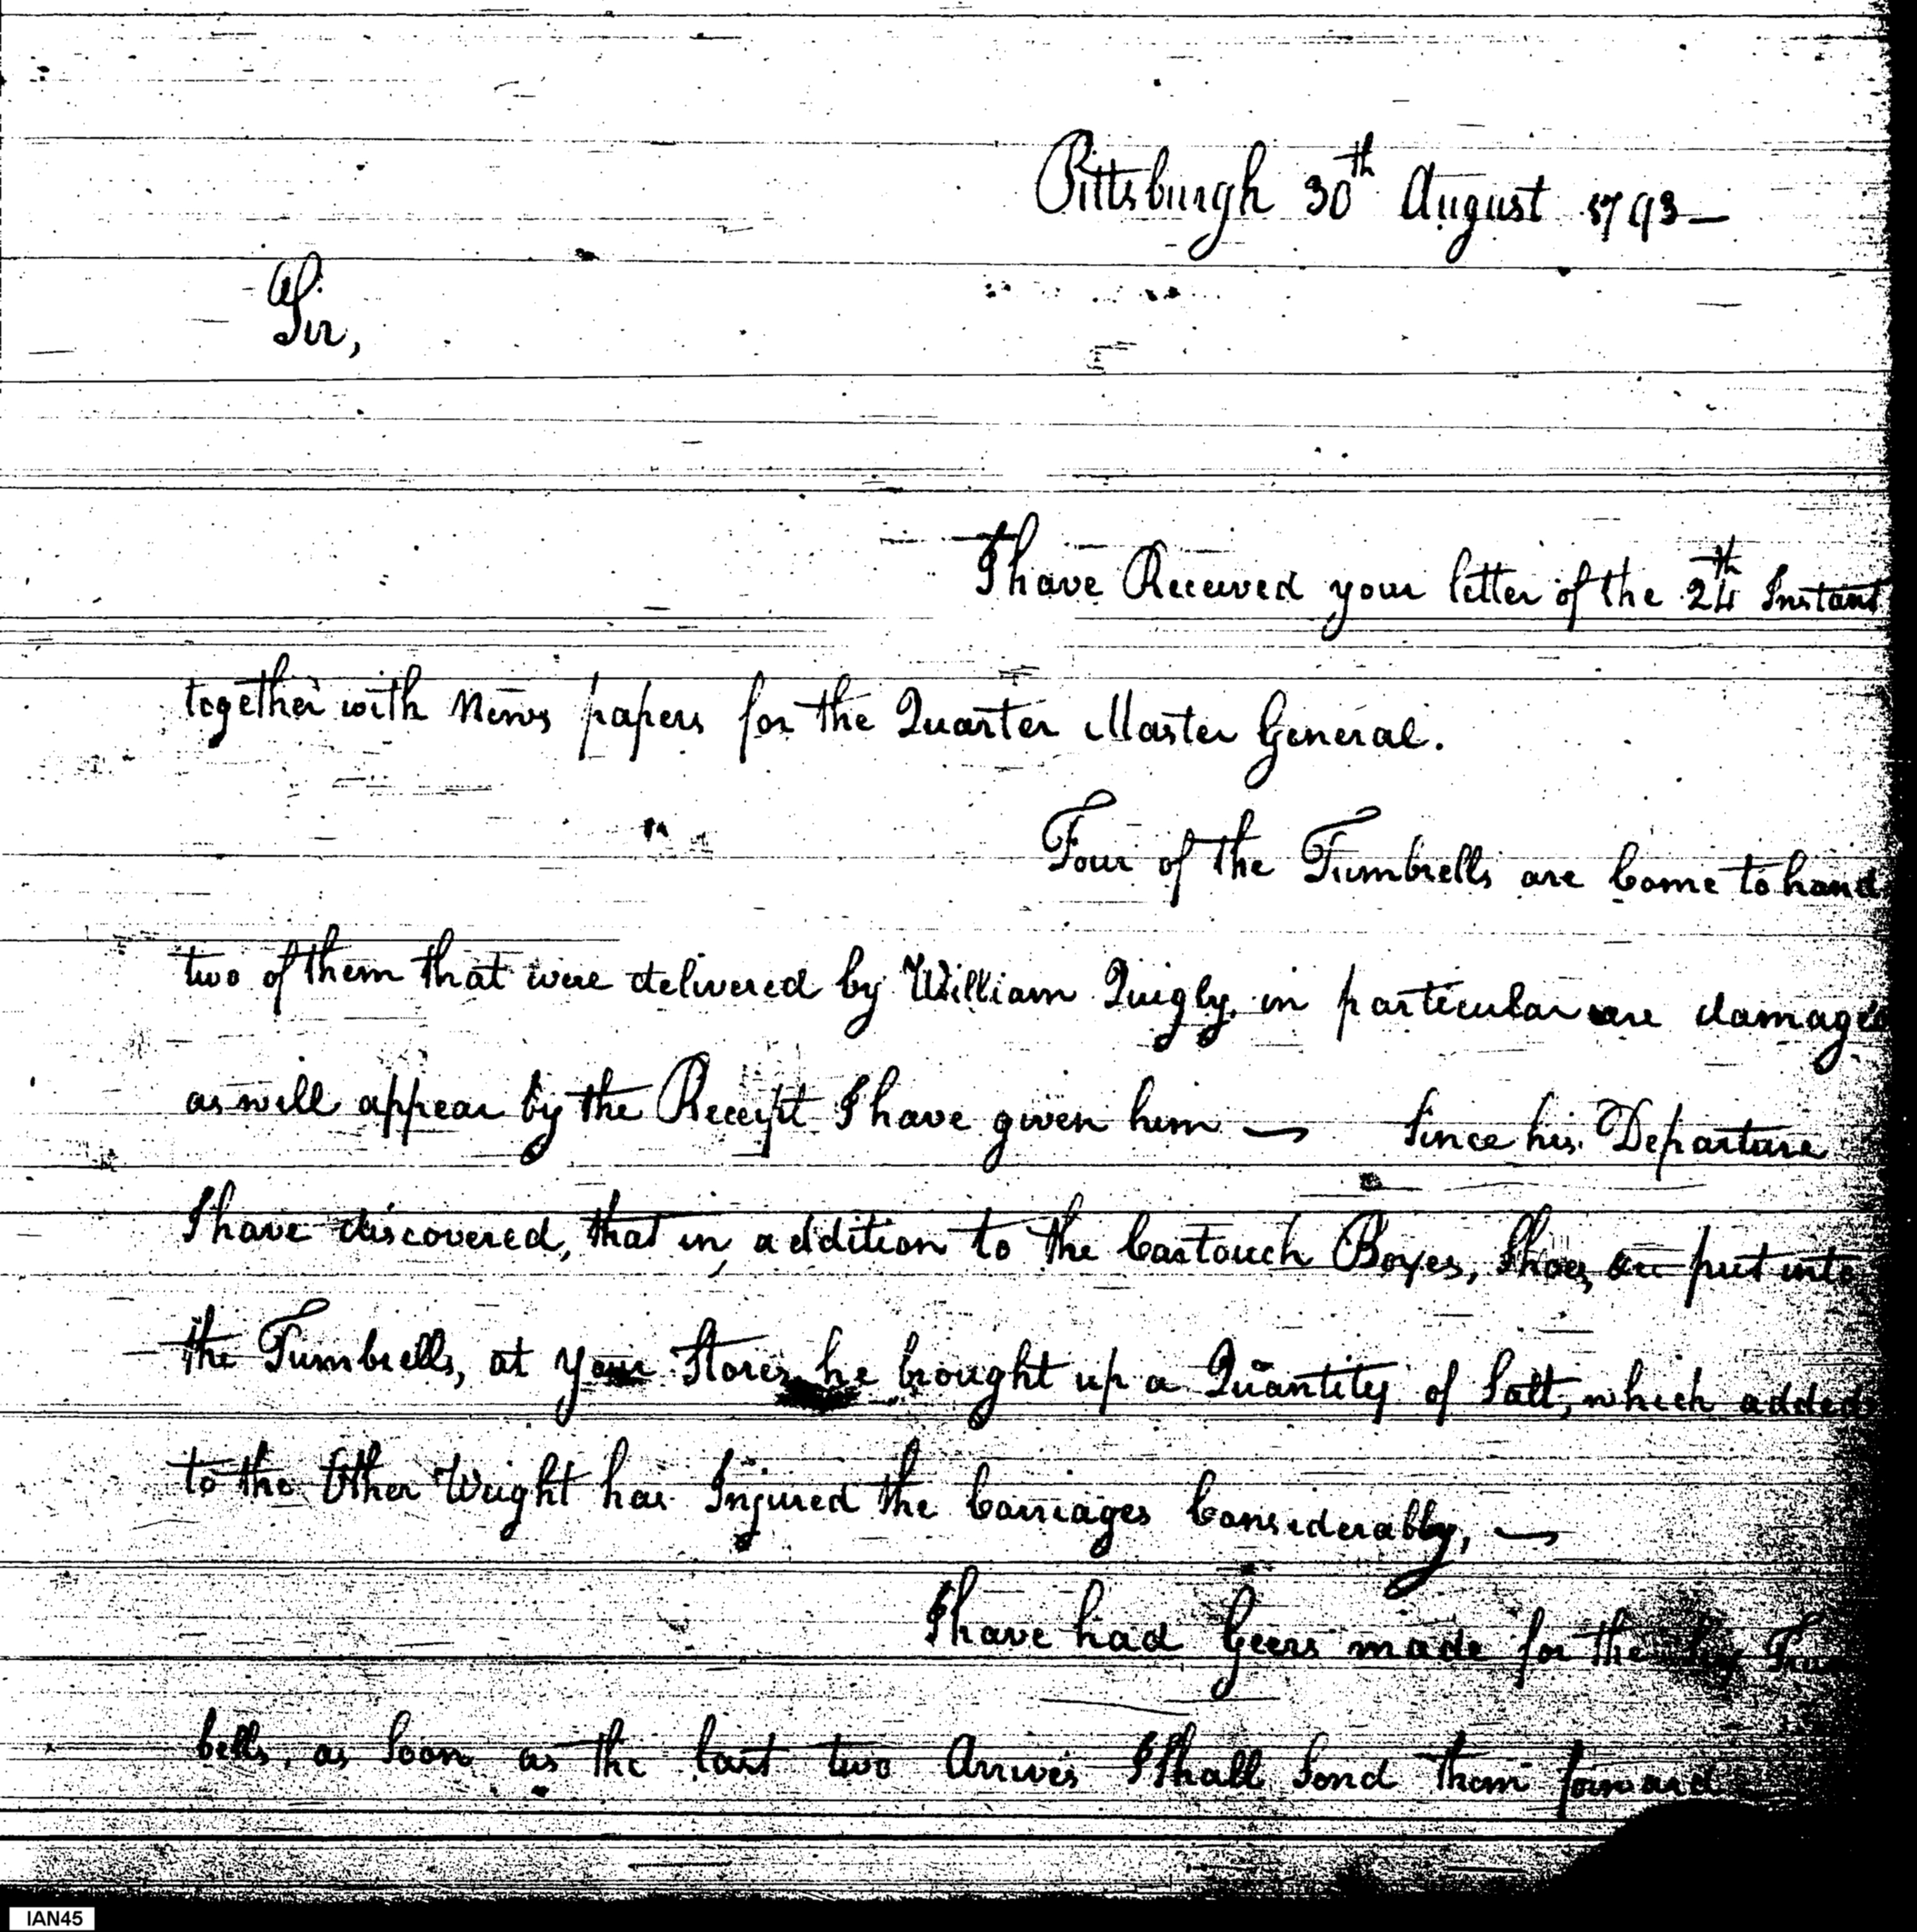 Pittsburgh 30th August 1793—
Sir,
I have Received your letter of the 24th Instant
together with News papers for the Quarter Master General.
Four of the Tumbrells are Come to hand
two of them that were delivered by William Quigly, in particular are damaged
as will appear by the Receipt I have given him — Since his Departure
I have discovered, that in addition to the Cartouch Boxes, Shoes, &c put into
the Tumbrells, at your Stores he brought up a Quantity of Salt, which added
to the Other Weight has Injured the Carriages Considerably, —
I have had Geers made for the Six Tum
bells, as Soon as the last two Arrives I Shall Send them forward
IAN45